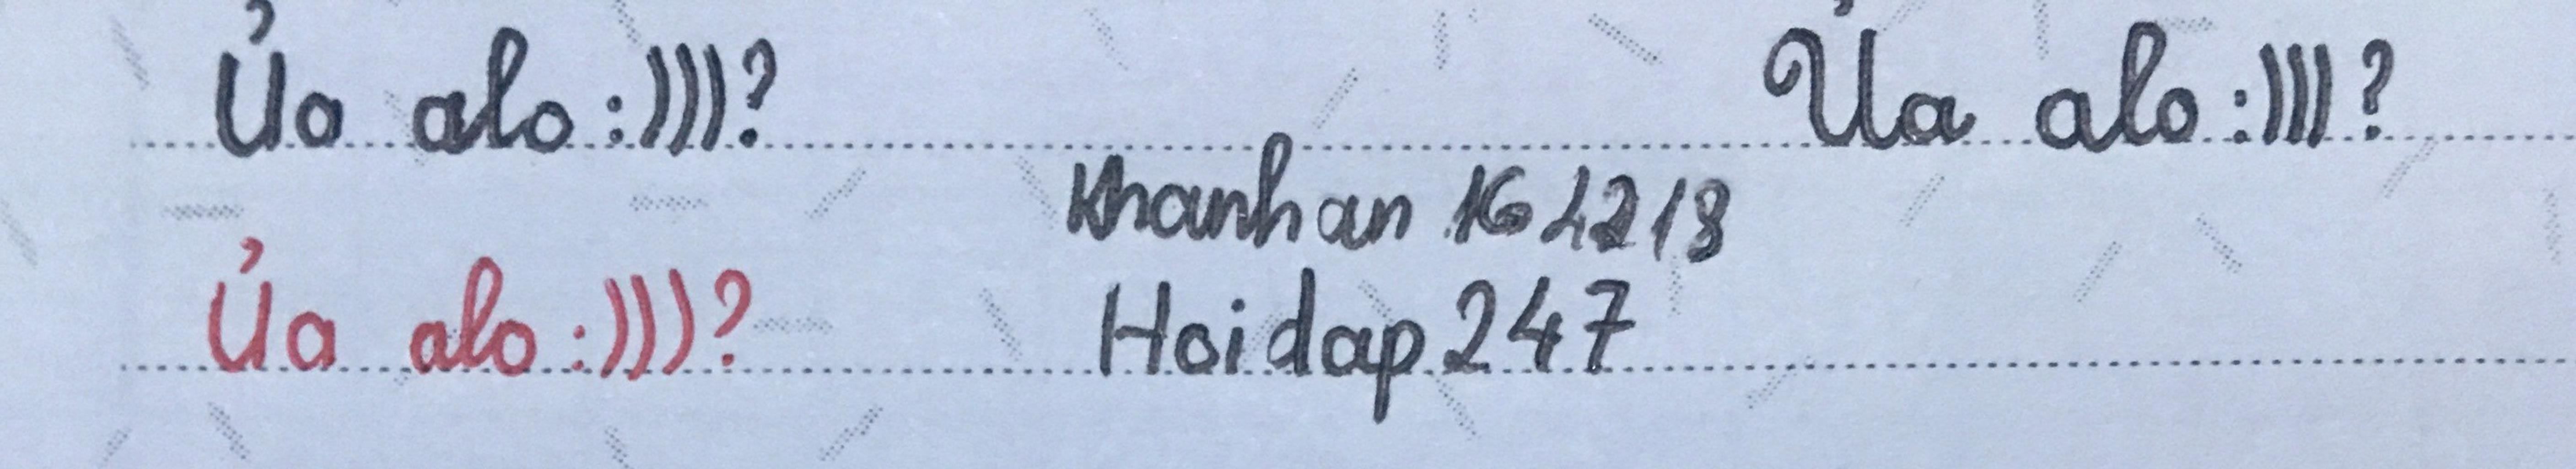 Ủa alo :)))? Ủa alo :)))?
Khanhan 164213
Ủa alo :)))? Hoidap247